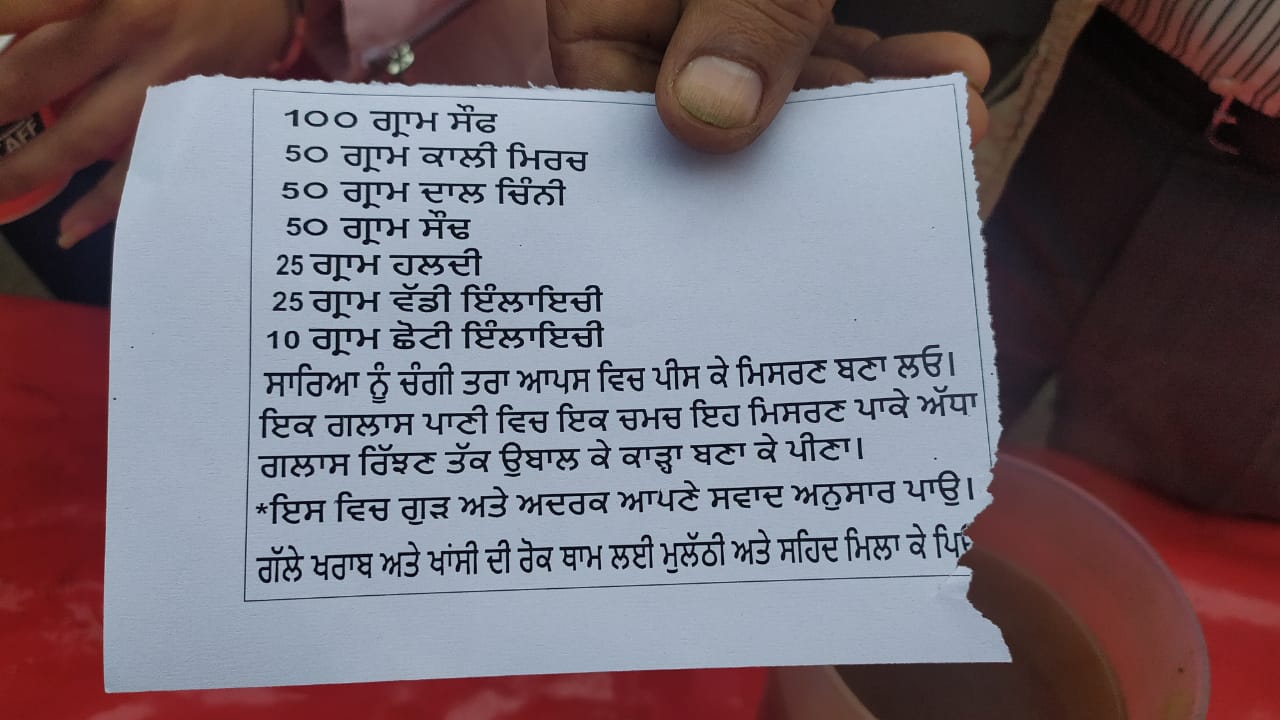 100 ਗ੍ਰਾਮ ਸੌਂਫ
50 ਗ੍ਰਾਮ ਕਾਲੀ ਮਿਰਚ
50 ਗ੍ਰਾਮ ਦਾਲ ਚਿੰਨੀ
50 ਗ੍ਰਾਮ ਸੌਂਢ
25 ਗ੍ਰਾਮ ਹਲਦੀ
25 ਗ੍ਰਾਮ ਵੱਡੀ ਇੰਲਾਇਚੀ
10 ਗ੍ਰਾਮ ਛੋਟੀ ਇੰਲਾਇਚੀ
ਸਾਰਿਆ ਨੂੰ ਚੰਗੀ ਤਰਾ ਆਪਸ ਵਿਚ ਪੀਸ ਕੇ ਮਿਸਰਣ ਬਣਾ ਲਓ।
ਇਕ ਗਲਾਸ ਪਾਣੀ ਵਿਚ ਇਕ ਚਮਚ ਇਹ ਮਿਸਰਣ ਪਾਕੇ ਅੱਧਾ
ਗਲਾਸ ਰਿੱਝਣ ਤੱਕ ਉਬਾਲ ਕੇ ਕਾੜ੍ਹਾ ਬਣਾ ਕੇ ਪੀਣਾ।
*ਇਸ ਵਿਚ ਗੁੜ ਅਤੇ ਅਦਰਕ ਆਪਣੇ ਸਵਾਦ ਅਨੁਸਾਰ ਪਾਉ।
ਗੱਲੇ ਖਰਾਬ ਅਤੇ ਖਾਂਸੀ ਦੀ ਰੋਕ ਥਾਮ ਲਈ ਮੁਲੱਠੀ ਅਤੇ ਸਹਿਦ ਮਿਲਾ ਕੇ